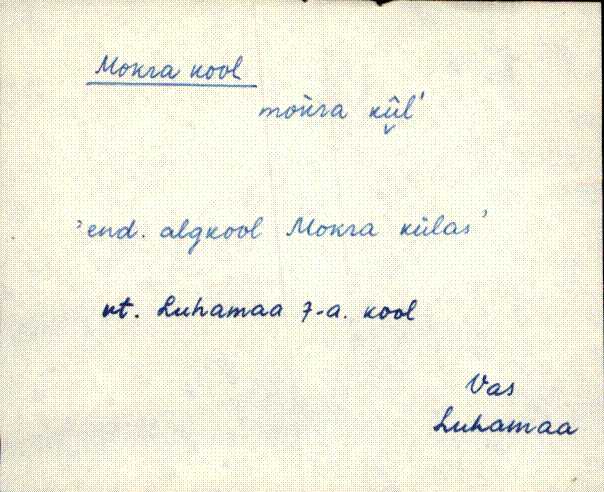 Mokra kool
mokra kül'
'end. algkool Mokra külas'
vt. Luhamaa 7-a. kool
Vas
Luhamaa